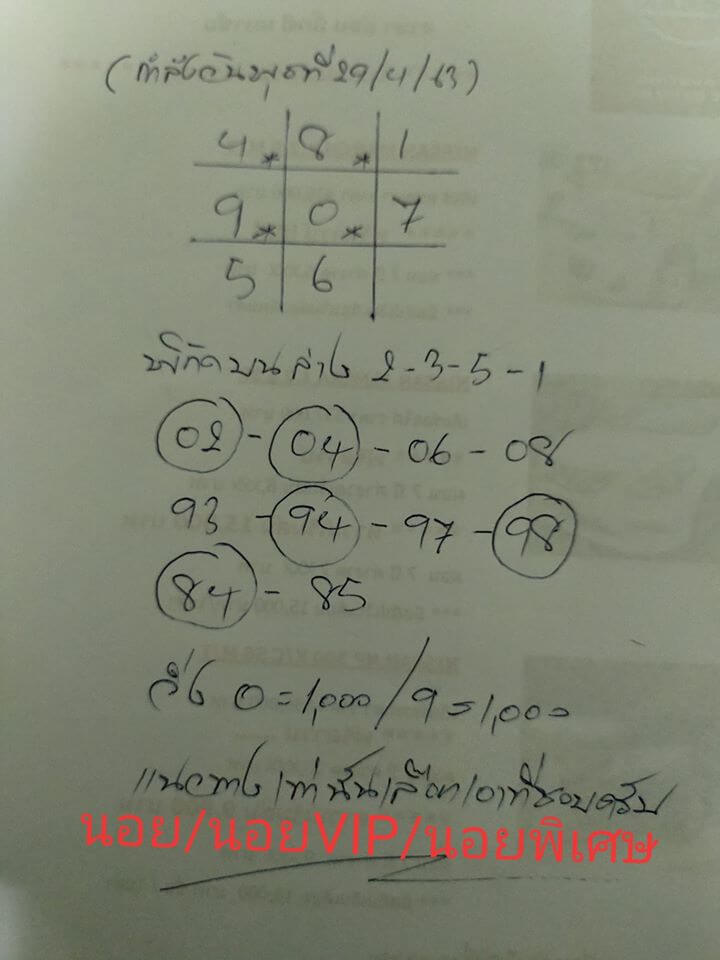 (กำลังวันพุธที่ 29/4/63)
4 * 8 * 1
9 * 0 * 7
5 6
พิกัดบนล่าง 2-3-5-1
02 - 04 - 06 - 08
93 - 94 - 97 - 98
84 - 85
วิ่ง 0=1,000 / 9=1,000
แนวทางเท่านั้นเลือกเอาที่ชอบครับ
นอย/นอยVIP/นอยพิเศษ